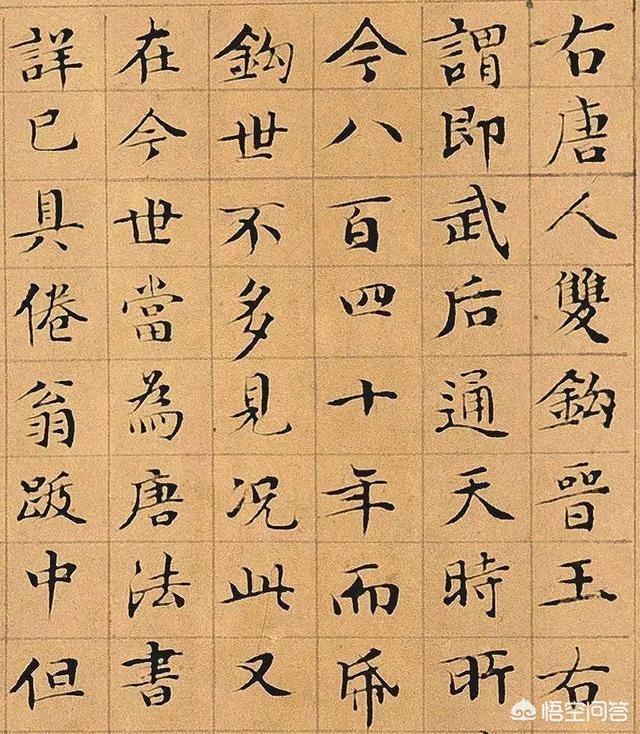 右唐人雙鈎晉王右
謂即武后通天時所
今八百四十年而帋
鈎世不多見况此又
在今世當為唐法書
詳已具倦翁跋中但
悟空问答